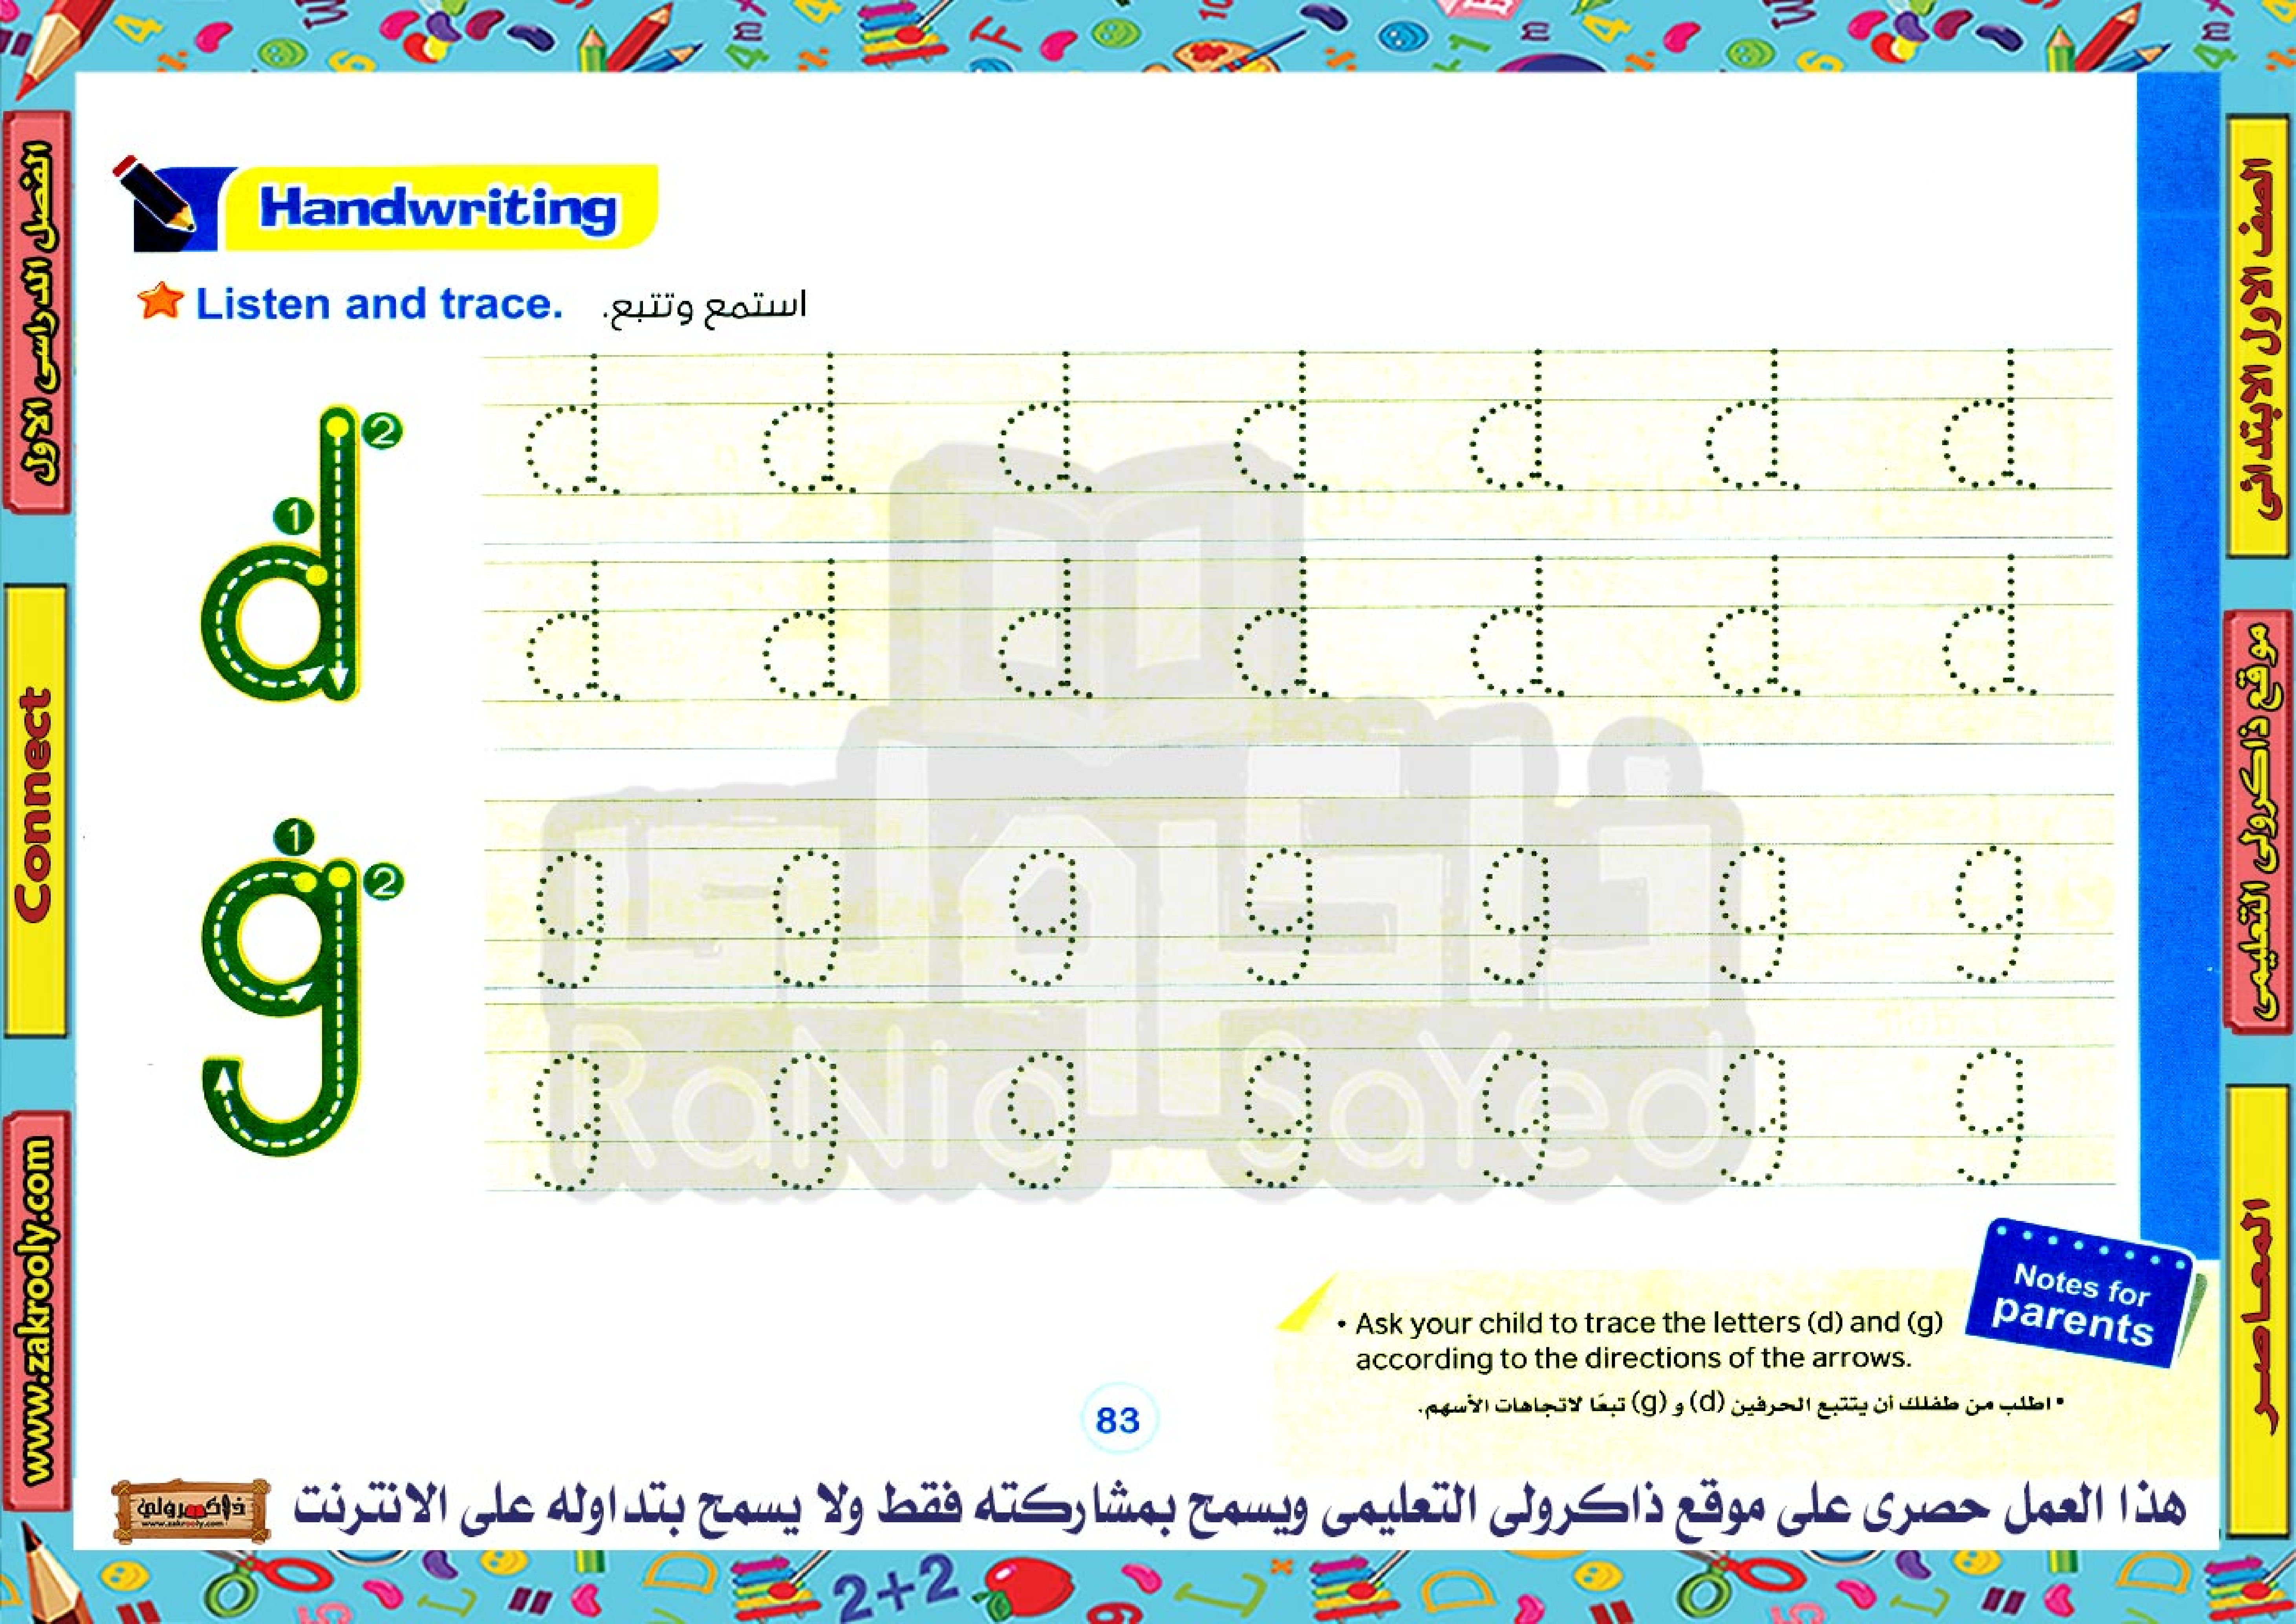 Handwriting
Listen and trace. استمع وتتبع.
2
1
d
d d d d d d d
d d d d d d d
1
2
g
g g g g g g g
g g g g g g g
RaNia SaYed
Notes for
parents
• Ask your child to trace the letters (d) and (g)
according to the directions of the arrows.
• اطلب من طفلك أن يتتبع الحرفين (d) و (g) تبعًا لاتجاهات الأسهم.
83
هذا العمل حصرى على موقع ذاكرولى التعليمى ويسمح بمشاركته فقط ولا يسمح بتداوله على الانترنت
ذاكرولي
www.zakrooly.com
الفصل الدراسى الاول
Connect
www.zakrooly.com
الصف الاول الابتدائى
موقع ذاكرولى التعليمى
المعاصر
2+2